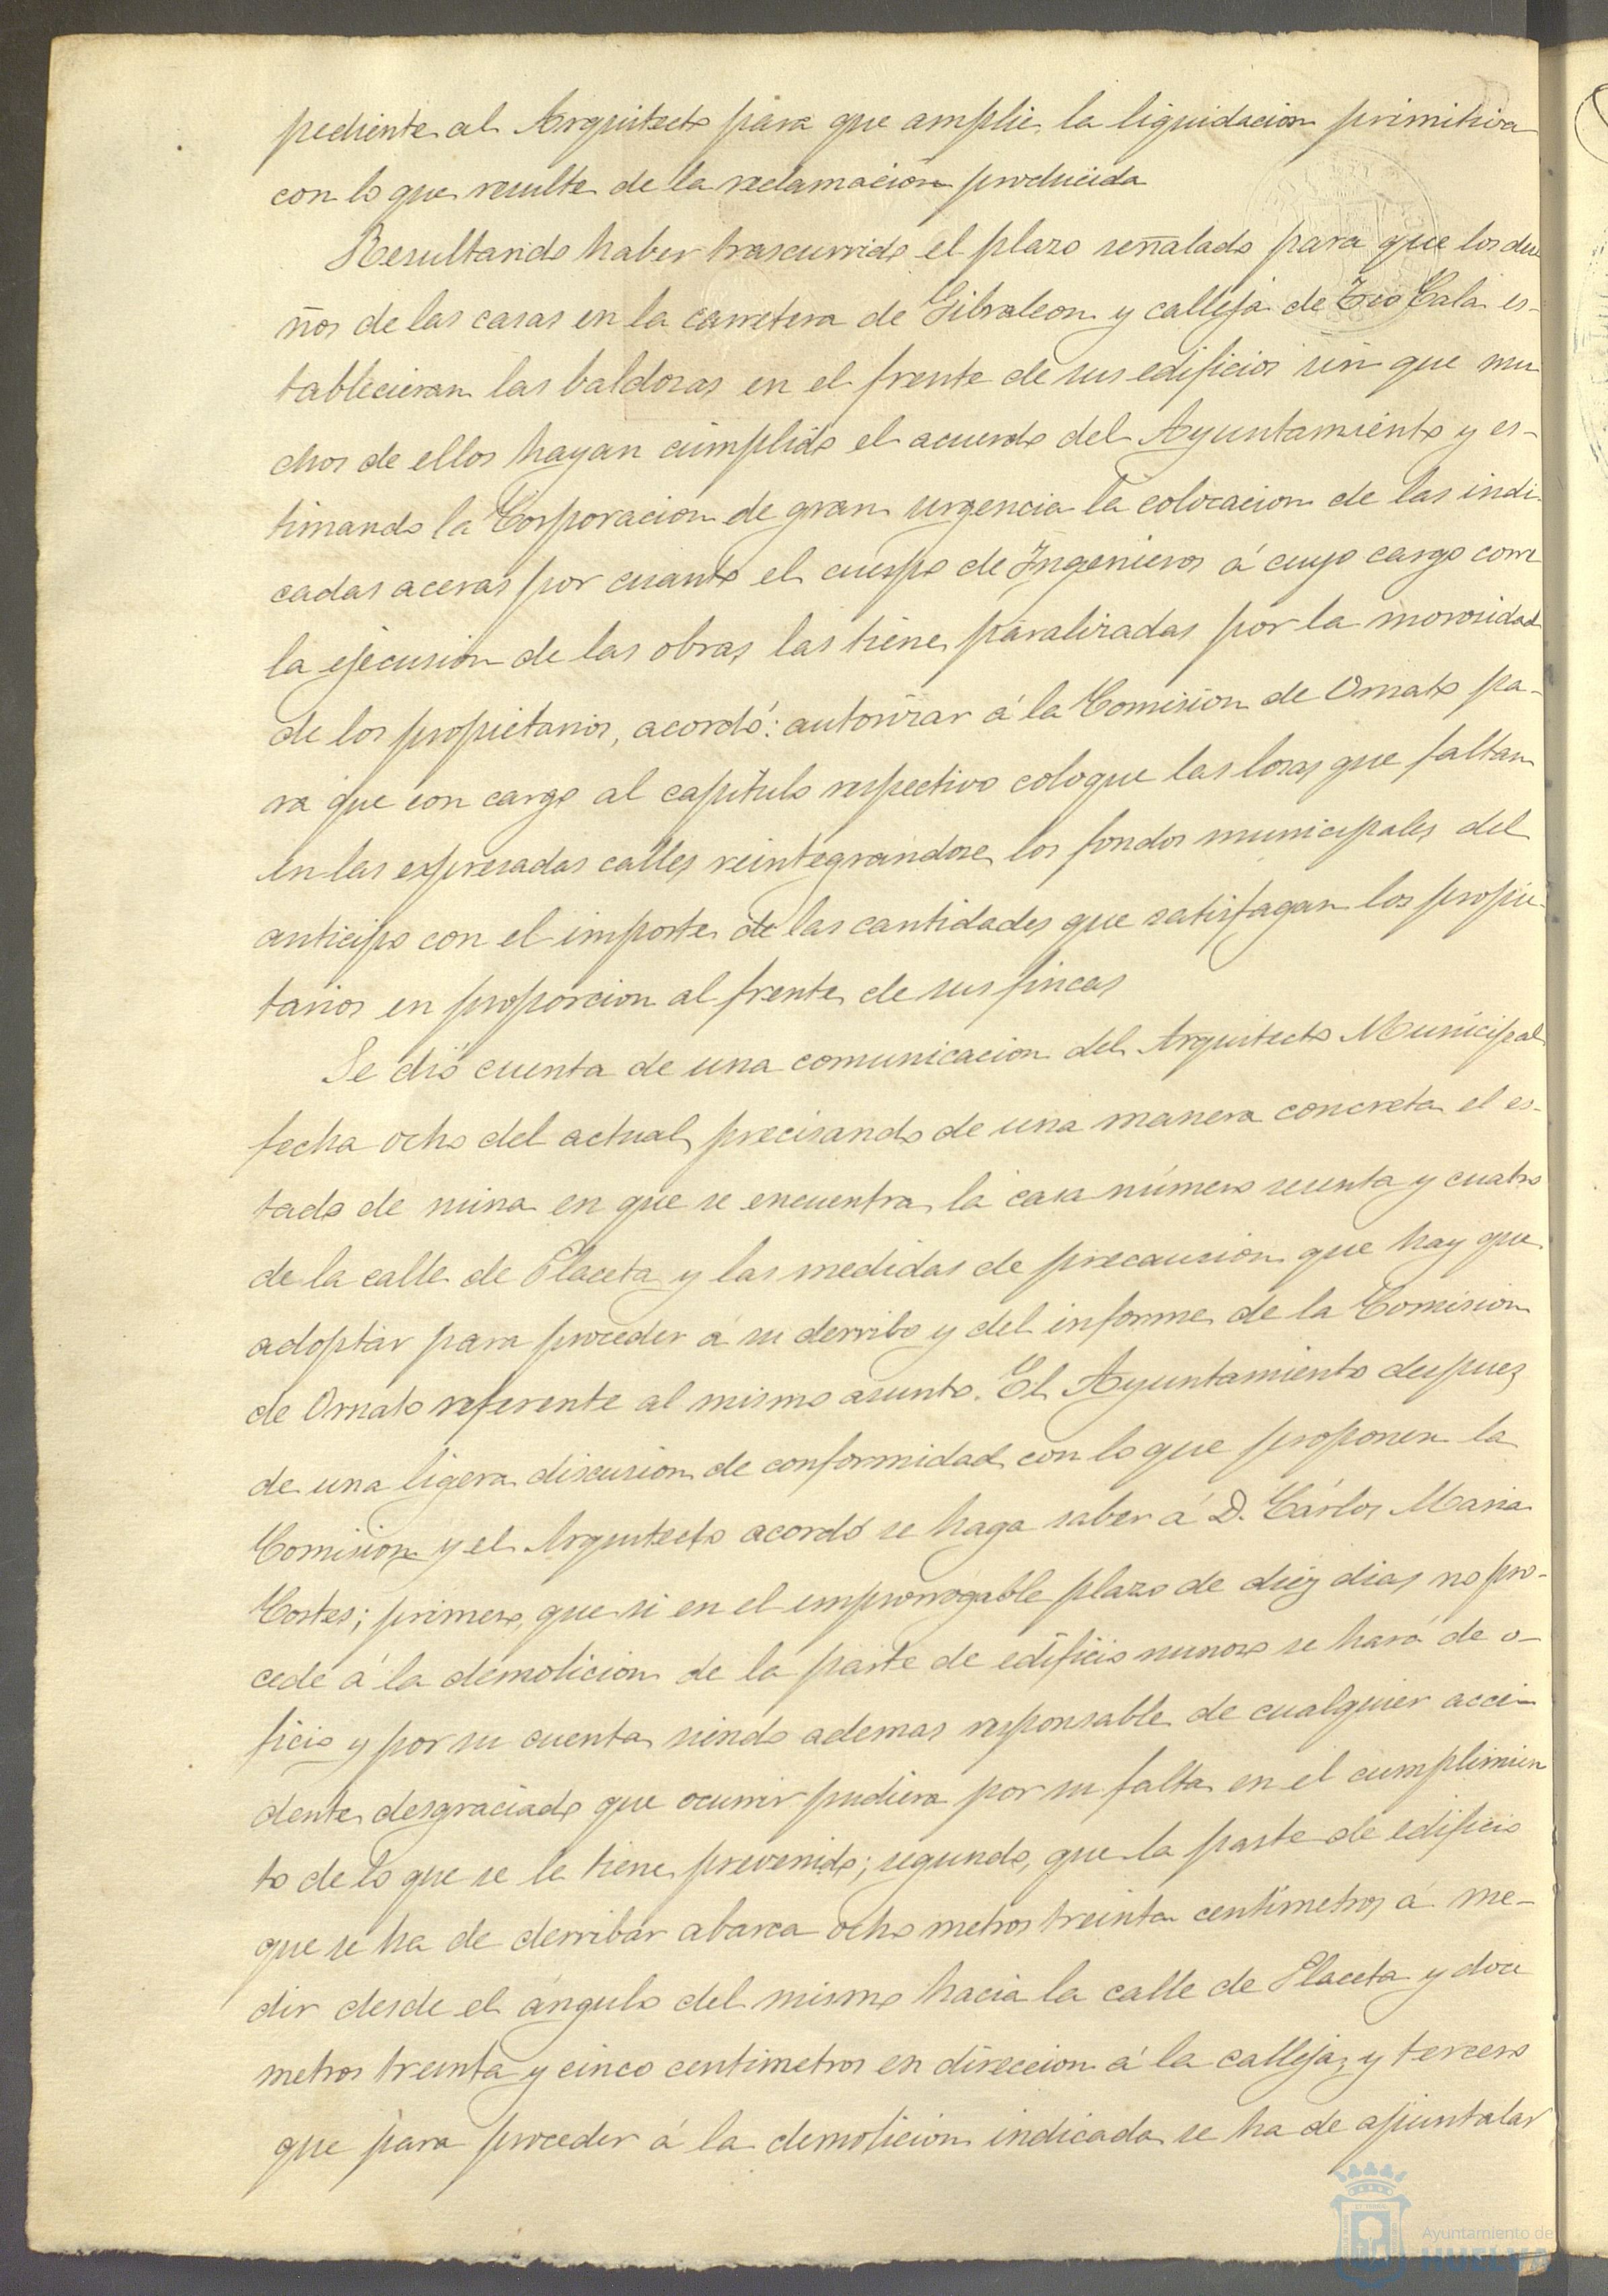 pediente al Arquitecto para que amplie la liquidacion primitiva
con lo que resulte de la reclamacion producida
Resultando haber trascurrido el plazo señalado para que los due
ños de las casas en la carretera de Gibraleon y calleja de Tio Cala es-
tablecieran las baldosas en el frente de sus edificios sin que mu
chos de ellos hayan cumplido el acuerdo del Ayuntamiento y es-
timando la Corporacion de gran urgencia la colocacion de las indi-
cadas aceras por cuanto el cuerpo de Ingenieros á cuyo cargo corre
la ejecusion de las obras las tiene paralizadas por la morosidad
de los propietarios, acordó: autorizar á la Comision de Ornato pa-
ra que con cargo al capítulo respectivo coloque las losas que faltan
en las expresadas calles reintegrandose los fondos municipales del
anticipo con el importe de las cantidades que satisfagan los propie-
tarios en proporcion al frente de sus fincas
Se dió cuenta de una comunicacion del Arquitecto Municipal
fecha ocho del actual precisando de una manera concreta el es-
tado de ruina en que se encuentra la casa número sesenta y cuatro
de la calle de Placeta y las medidas de precaucion que hay que
adoptar para proceder á su derribo y del informe de la Comision
de Ornato referente al mismo asunto. El Ayuntamiento despues
de una ligera discusion de conformidad con lo que proponen la
Comision y el Arquitecto acordó se haga saber á D. Cárlos Maria
Cortes; primero, que si en el improrrogable plazo de diez dias no pro-
cede á la demolicion de la parte de edificio ruinoso se hará de o-
ficio y por su cuenta siendo ademas responsable de cualquier acci-
dente desgraciado que ocurrir pudiera por su falta en el cumplimien
to de lo que se le tiene prevenido; segundo, que la parte de edificio
que se ha de derribar abarca ocho metros treinta centímetros á me-
dir desde el ángulo del mismo hacia la calle de Placeta y doce
metros treinta y cinco centimetros en direccion á la calleja, y tercero
que para proceder á la demolicion indicada se ha de apuntalar
Ayuntamiento de
HUELVA